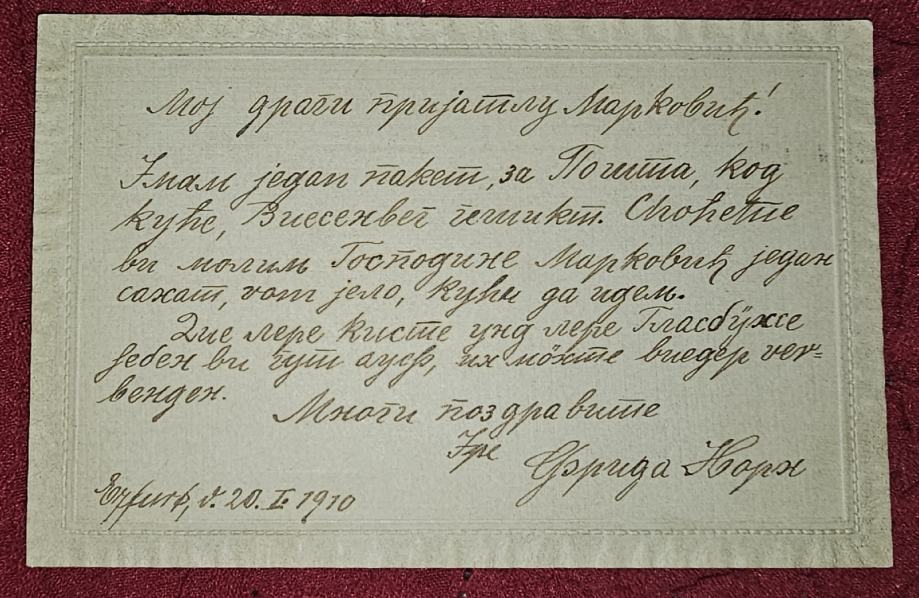 Мој драги пријатлу Марковић!
Імам једап пакет, за Пошта, код
куће, Виесенвег гешикт. Choћете
ви молим Господине Марковић један
сахат, vom јело, кући да идем.
Дие лере кисте унд лере Гласбӱхсе
ћебен ви гут ауф, их мӧхте виедер ver=
венден.
Многи поздравите
Іре
Фрида Хорн
Erfurt, d. 20. I. 1910